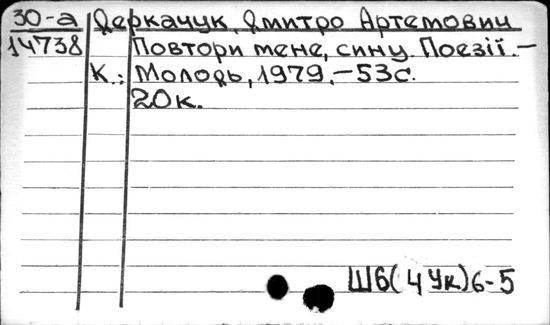 30-а Деркачук, Дмитро Артемович
14738 Повтори мене, сину. Поезії.–
К.: Молодь, 1979.–53с.
20к.
Ш6(4Ук)6-5